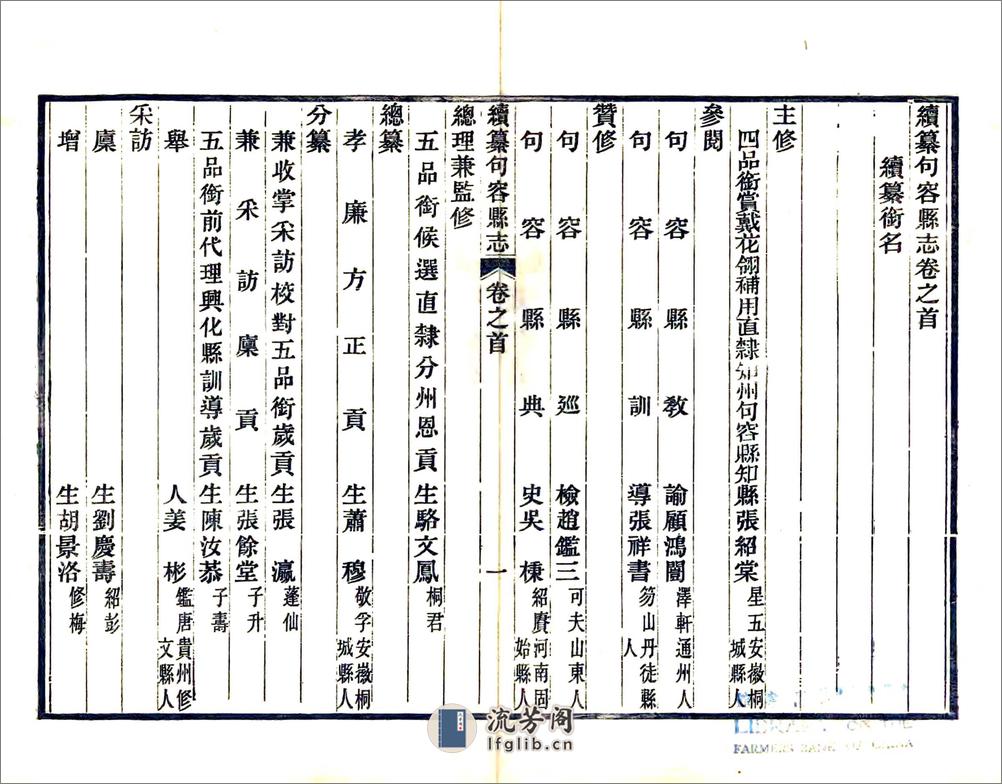 續纂句容縣志卷之首
續纂銜名
主修
四品銜賞戴花翎補用直隸知州句容縣知縣張紹棠 星五安徽桐城縣人
參閱
句容縣教諭顧鴻闓 澤軒通州人
句容縣訓導張祥書 笏山丹徒縣人
贊修
句容縣巡檢趙鑑三 可夫山東人
句容縣典史吳楝 紹賡河南固始縣人
續纂句容縣志 卷之首 一
總理兼監修
五品銜候選直隸分州恩貢生駱文鳳 桐君
總纂
孝廉方正貢生蕭穆 敬孚安徽桐城縣人
分纂
兼收掌采訪校對五品銜歲貢生張瀛 蓬仙
兼采訪廩貢生張餘堂 子升
五品銜前代理興化縣訓導歲貢生陳汝恭 子壽
舉人姜彬 鑑唐貴州修文縣人
采訪
廩生劉慶壽 紹彭
增生胡景洛 修梅
流芳阁
lfglib.cn
LIBRARY OF THE
FARMERS BANK OF CHINA